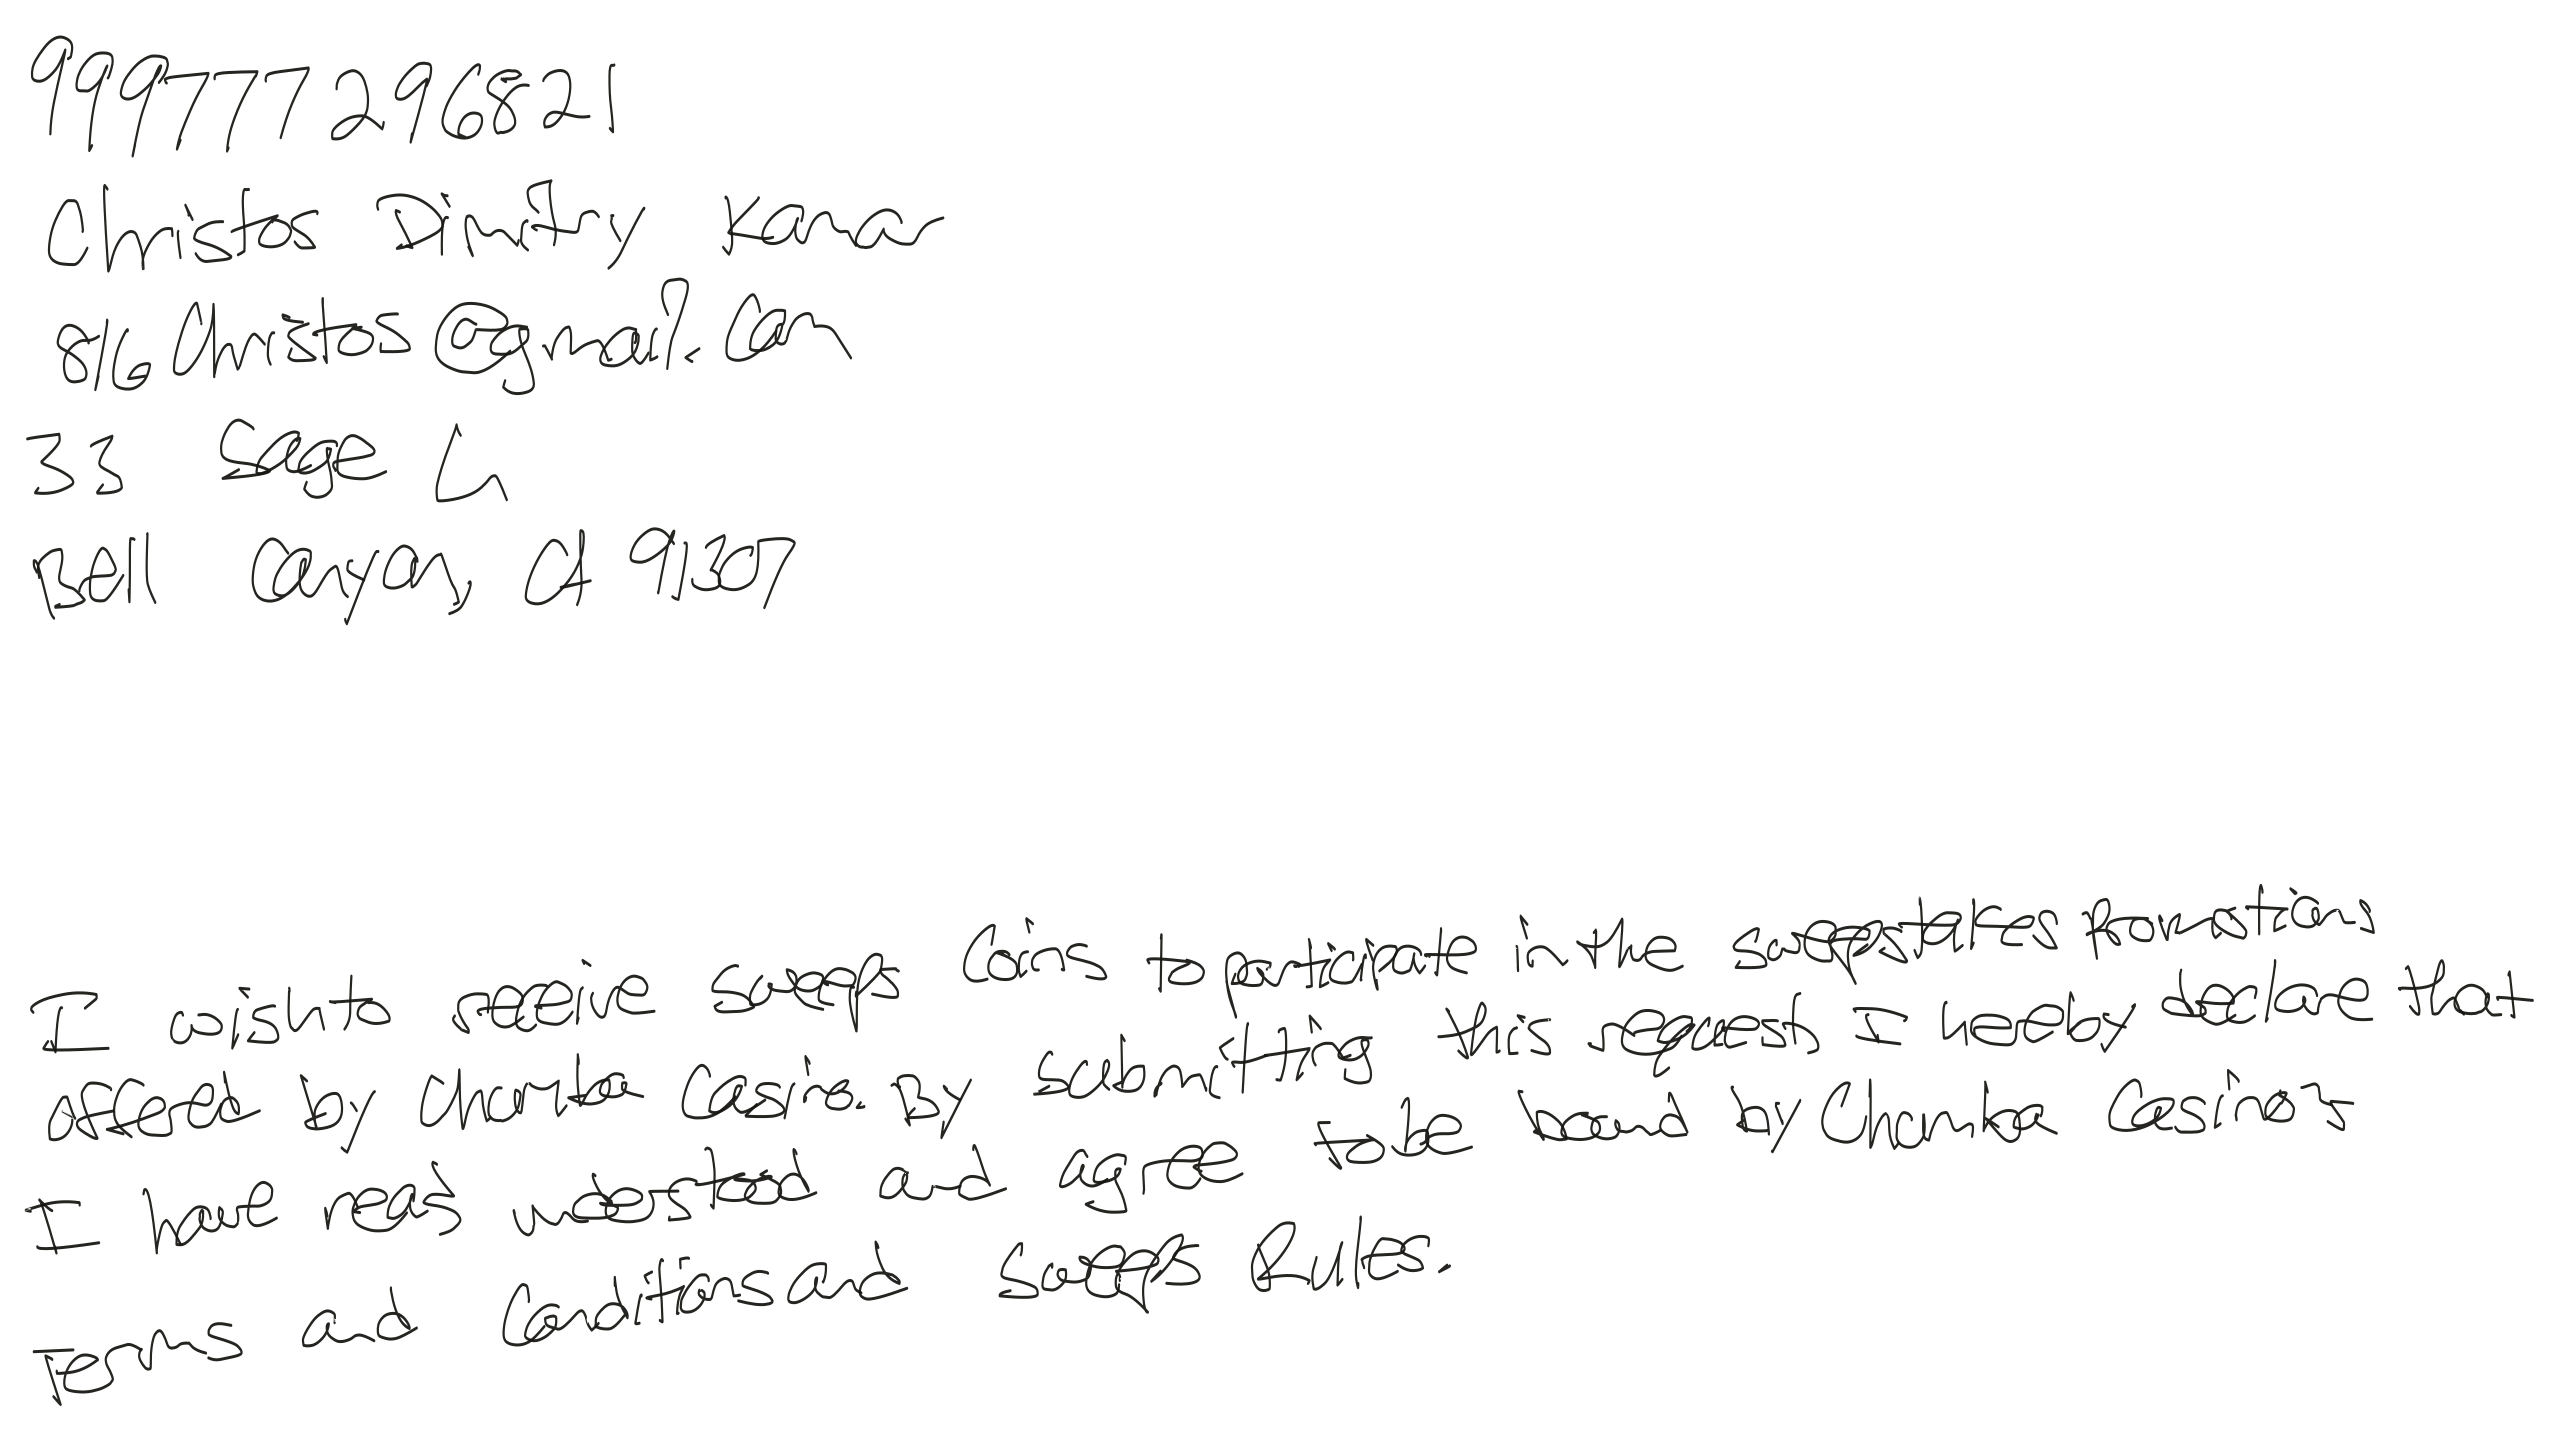 999777296821
Christos Dimitry Kanar
816Christos@gmail.com
33 Sage Ln
Bell Canyon, CA 91307
I wish to receive sweeps Coins to participate in the sweepstakes promotions
offered by Chumba Casino. By submitting this request I hereby declare that
I have read understood and agree to be bound by Chumba Casino's
Terms and Conditions and Sweeps Rules.